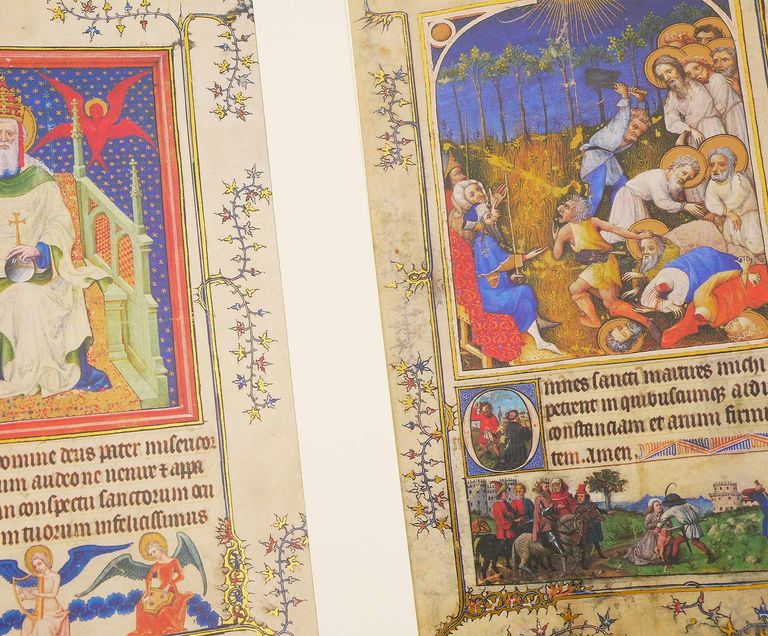 domine deus pater misericor
um audeo ne uenire & appa
n conspectu sanctorum ocu
m tuorum infelicissimus
Omnes sancti martires michi
in quibuscumqꝫ
constanciam et animi firmi
tem. Amen.